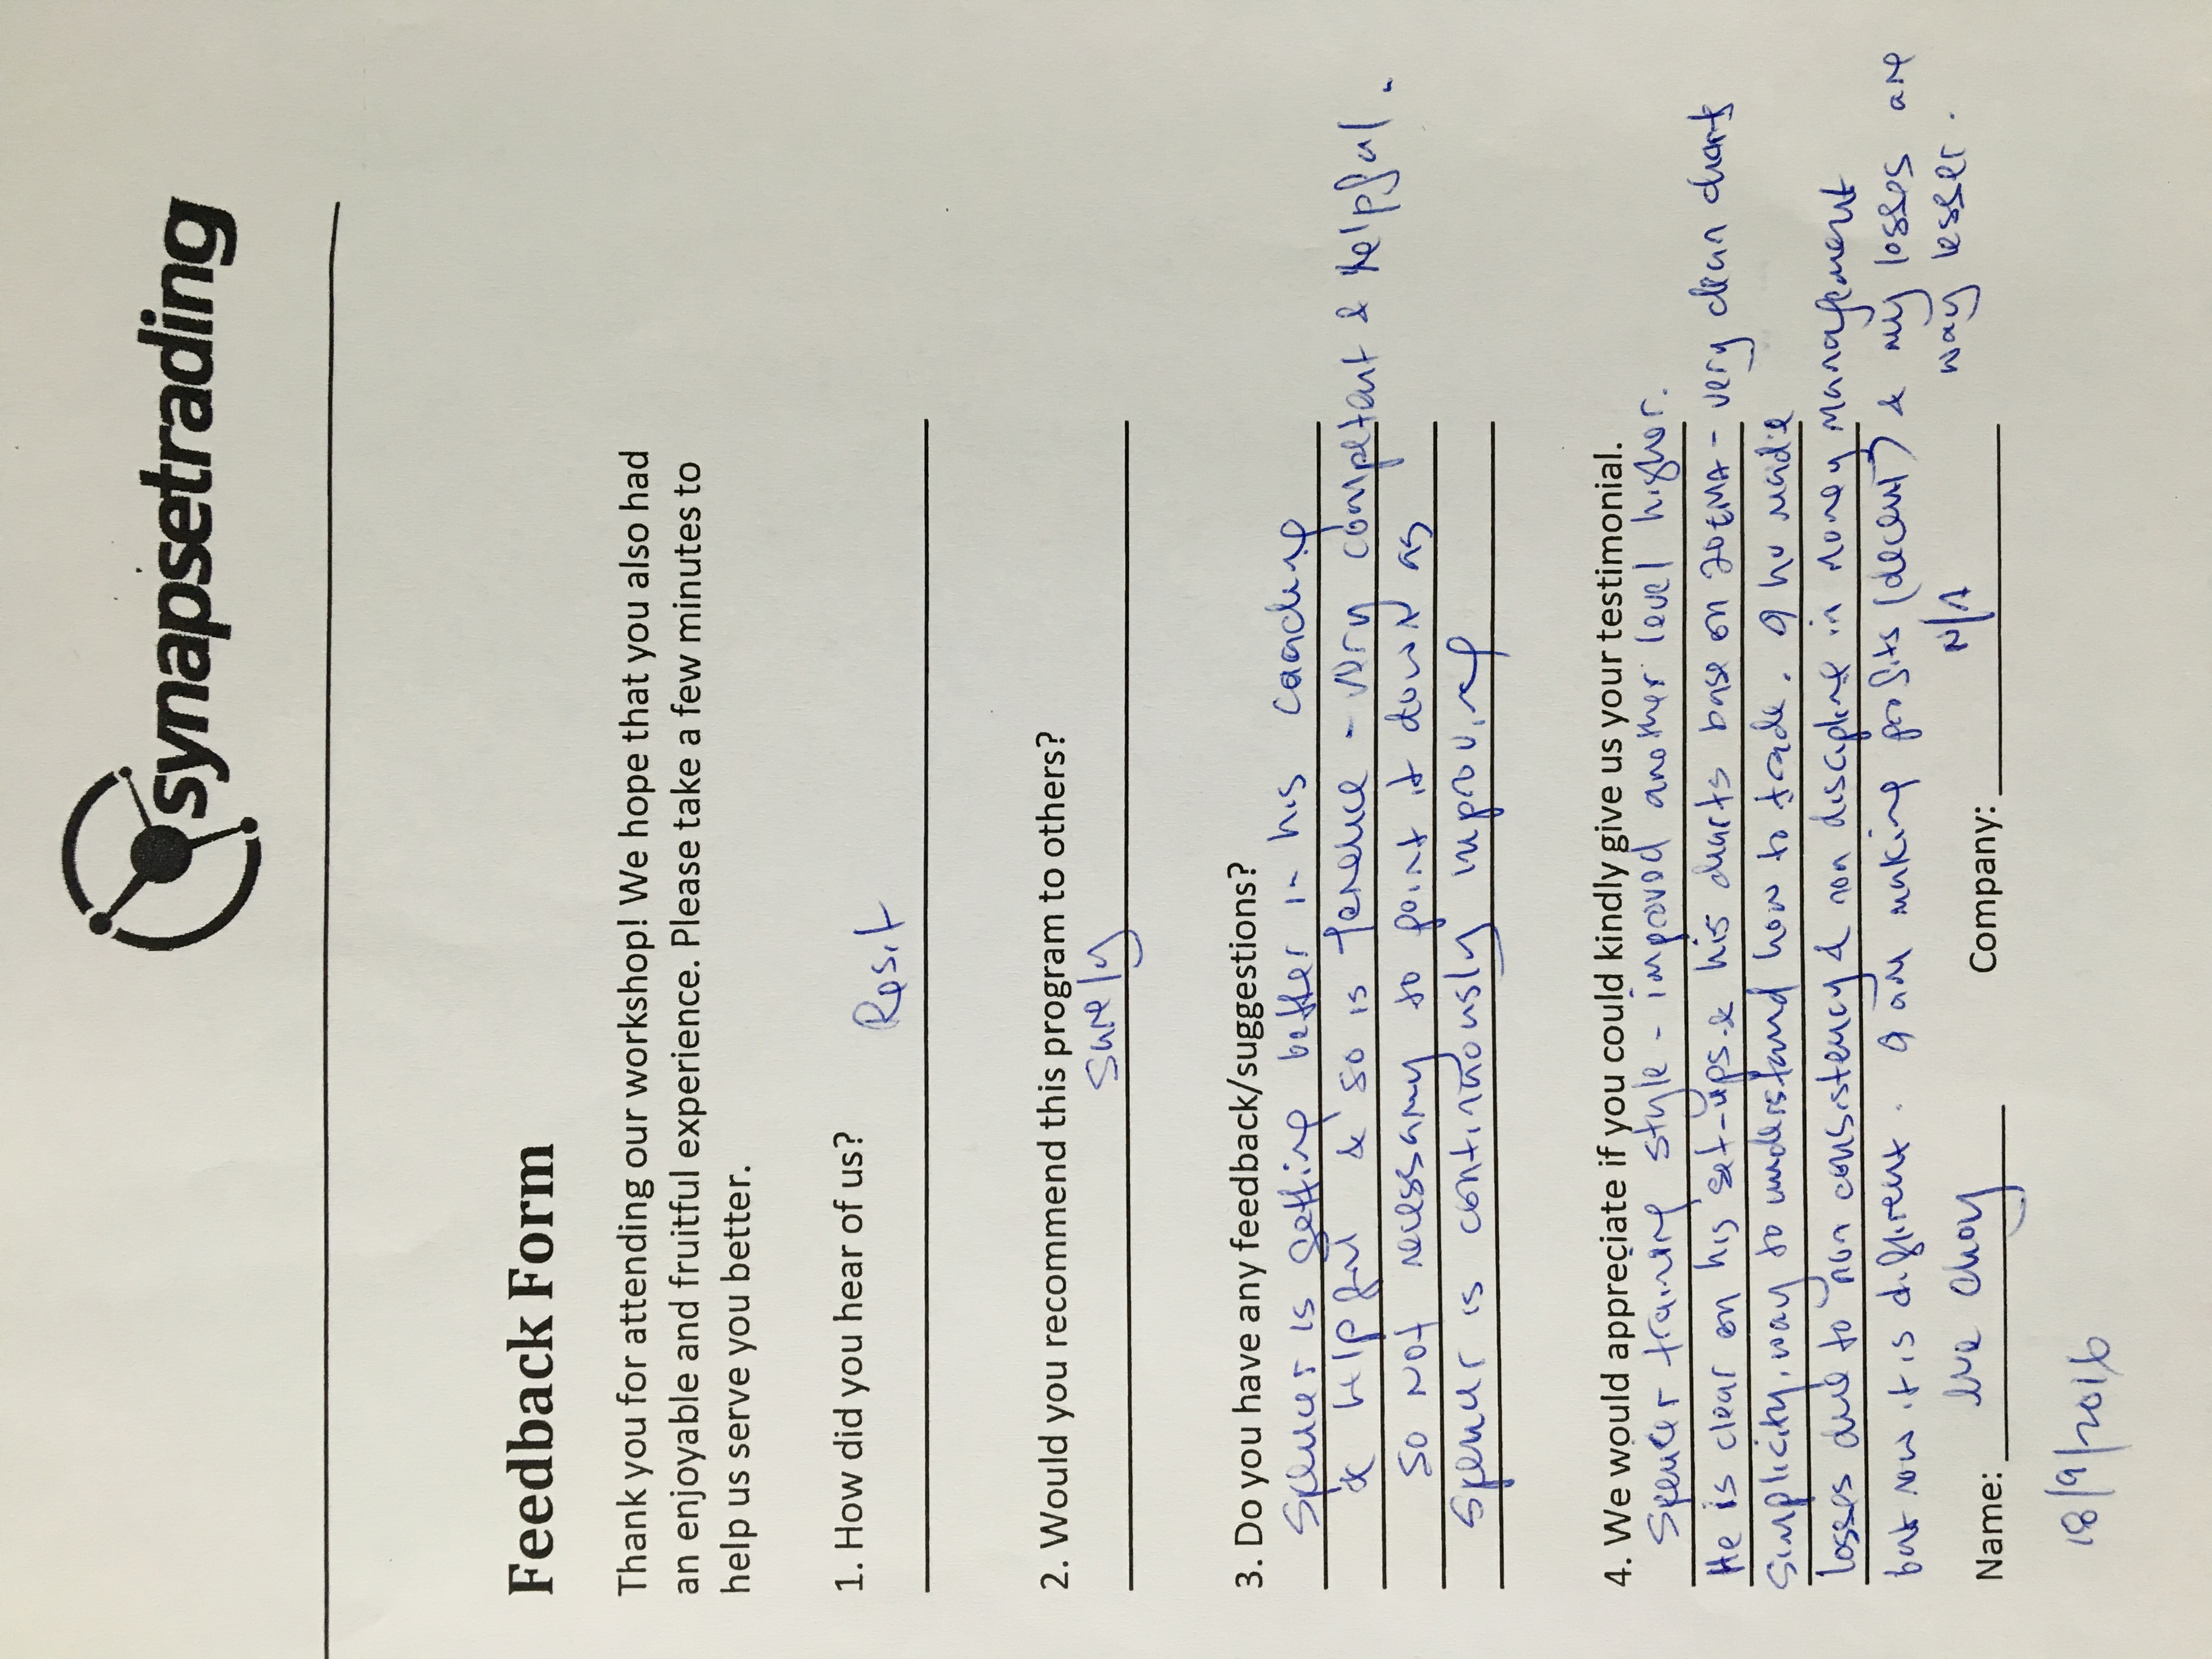 synapsetrading
Feedback Form
Thank you for attending our workshop! We hope that you also had
an enjoyable and fruitful experience. Please take a few minutes to
help us serve you better.
1. How did you hear of us?
Resit
2. Would you recommend this program to others?
Surely
3. Do you have any feedback/suggestions?
Spencer is getting better in his coaching
& helpful & so is Terence - very competant & helpful.
So NOT necessary to point it down as
Spencer is continuously improving
4. We would appreciate if you could kindly give us your testimonial.
Spencer training style - improved another level higher.
He is clear on his set-ups & his charts base on 20EMA - very clean charts
Simplicity, way to understand how to trade. I hv made
losses due to non consistency & non discipline in money management
but now it is different. I am making profits (decent) & my losses are
way lesser.
Name: Choy
Company: N/A
18/9/2016